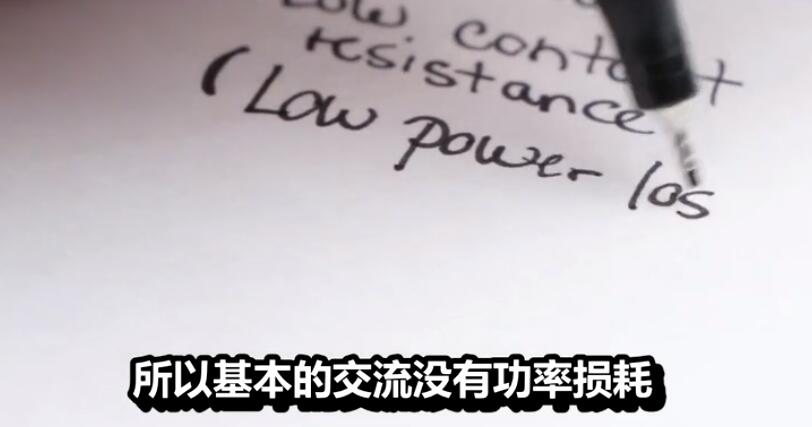 Low contact
resistance
(Low power los
所以基本的交流没有功率损耗